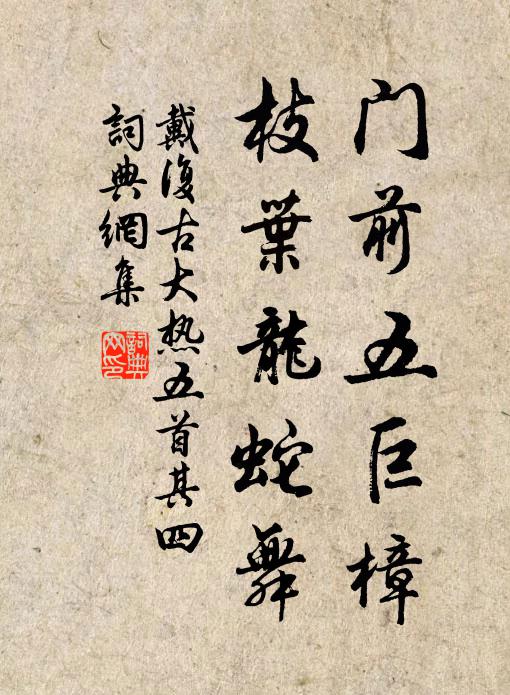 门前五巨樟
枝葉龍蛇舞
戴復古大热五首其四
詞典網集
詞典网印